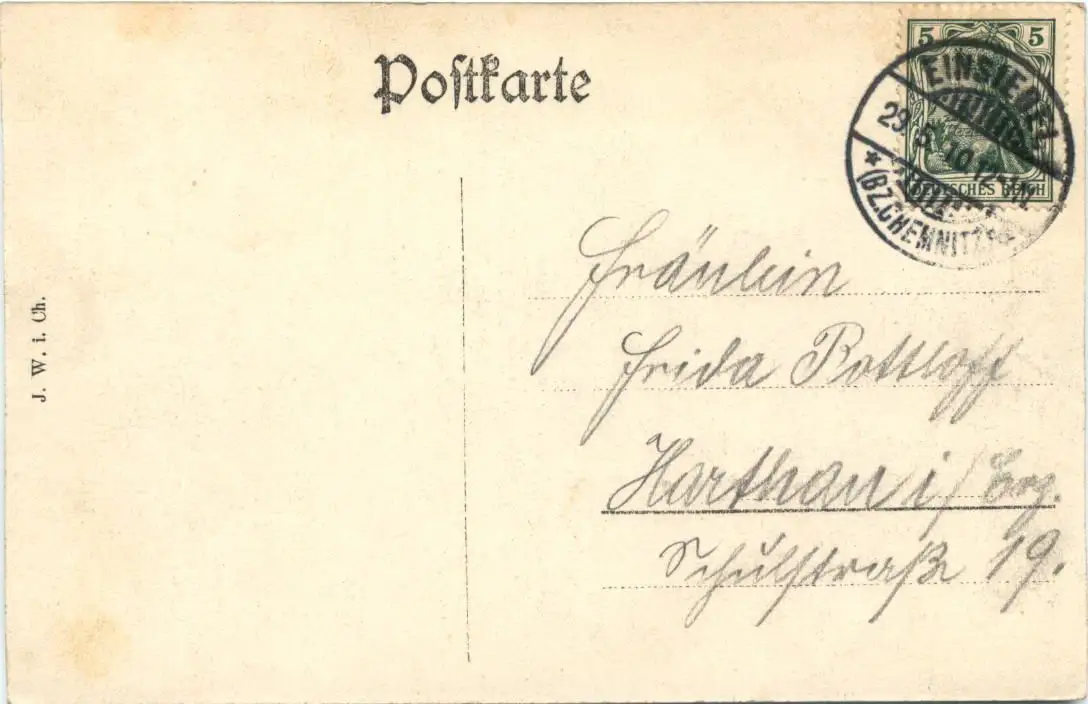 Postkarte
5 5
EINSIEDEL
29.5.10.12-1N.
* (BZ.CHEMNITZ)
DEUTSCHES REICH
J. W. i. Ch.
Fräulein
Frida Rottloff
Harthau i/Erzg.
Schulstraße 19.